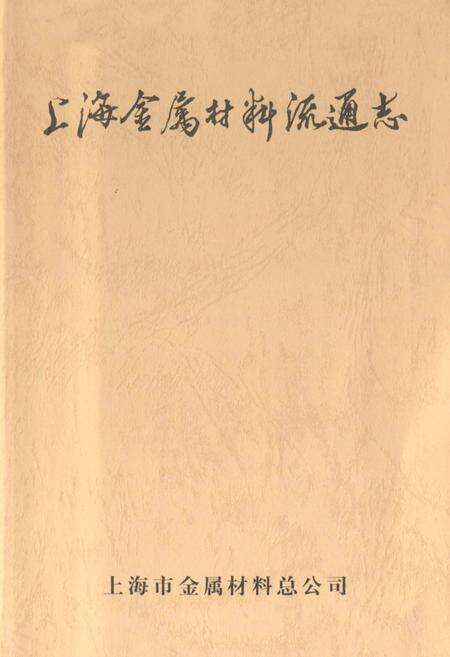 上海金属材料流通志
上海市金属材料总公司